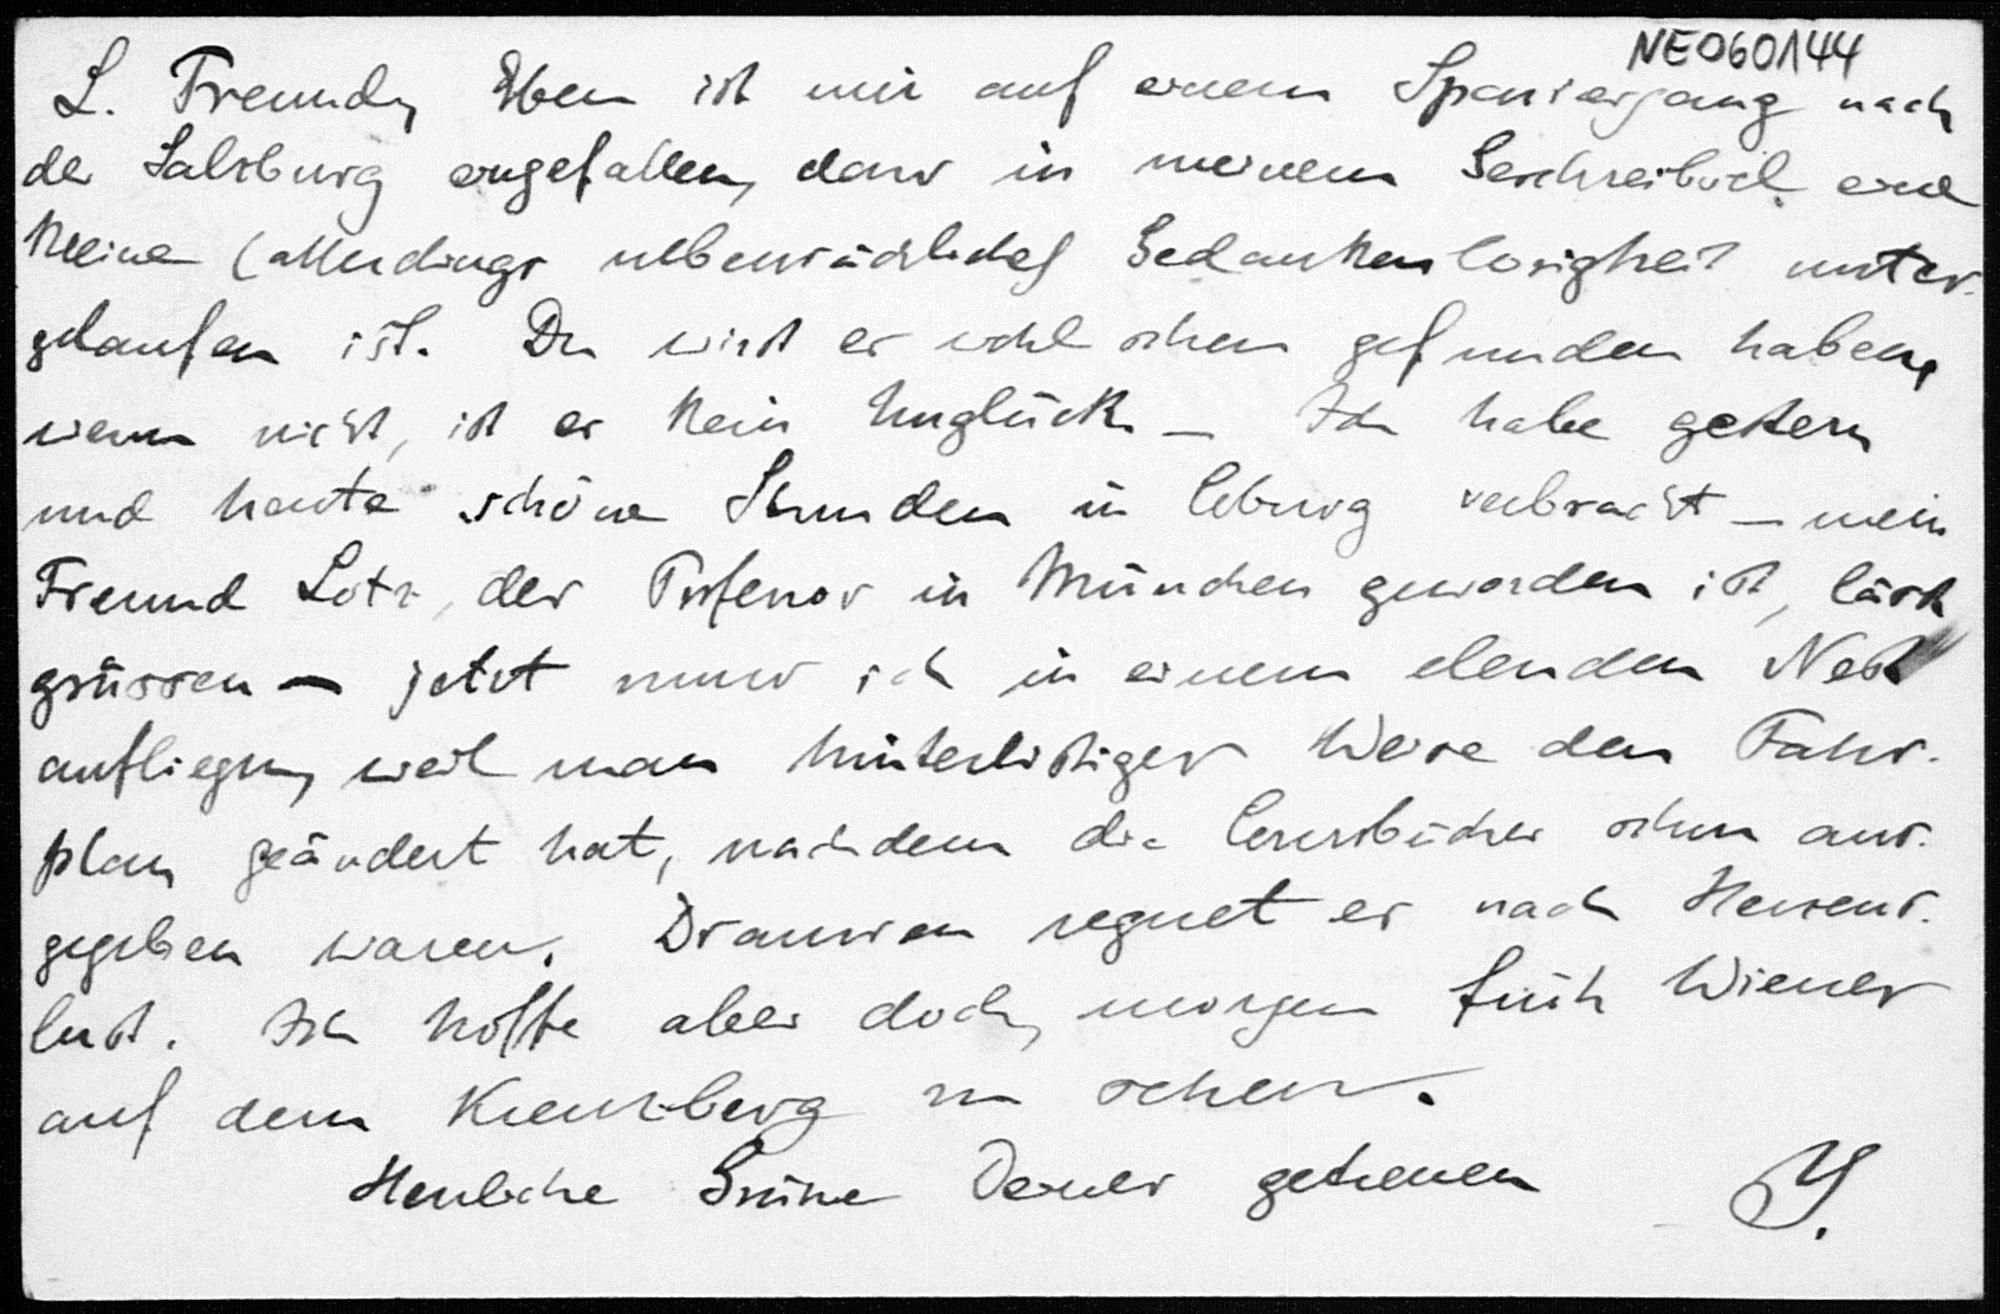 NE060144
L. Freund, Eben ist mir auf einem Spaziergang nach
der Salzburg eingefallen, dass in meinem eine
kleine (allerdings nebensächliche) Gedankenlosigkeit unter-
gelaufen ist. Du wirst es wohl schon gefunden haben,
wenn nicht, ist es kein Unglück – Ich habe gestern
und heute schöne Stunden in Coburg verbracht – mein
Freund Lotz, der Professor in München geworden ist, lässt
grüssen – jetzt muss ich in einem elenden Nest
aufliegen, weil man hinterlistiger Weise den Fahr-
plan geändert hat, nachdem die Cursbücher schon aus-
gegeben waren. Draussen regnet es nach Herzens-
lust. Ich hoffe aber doch, morgen früh Wiener
auf dem Kreuzberg zu sehen.
Herzliche Grüsse Deines getreuen